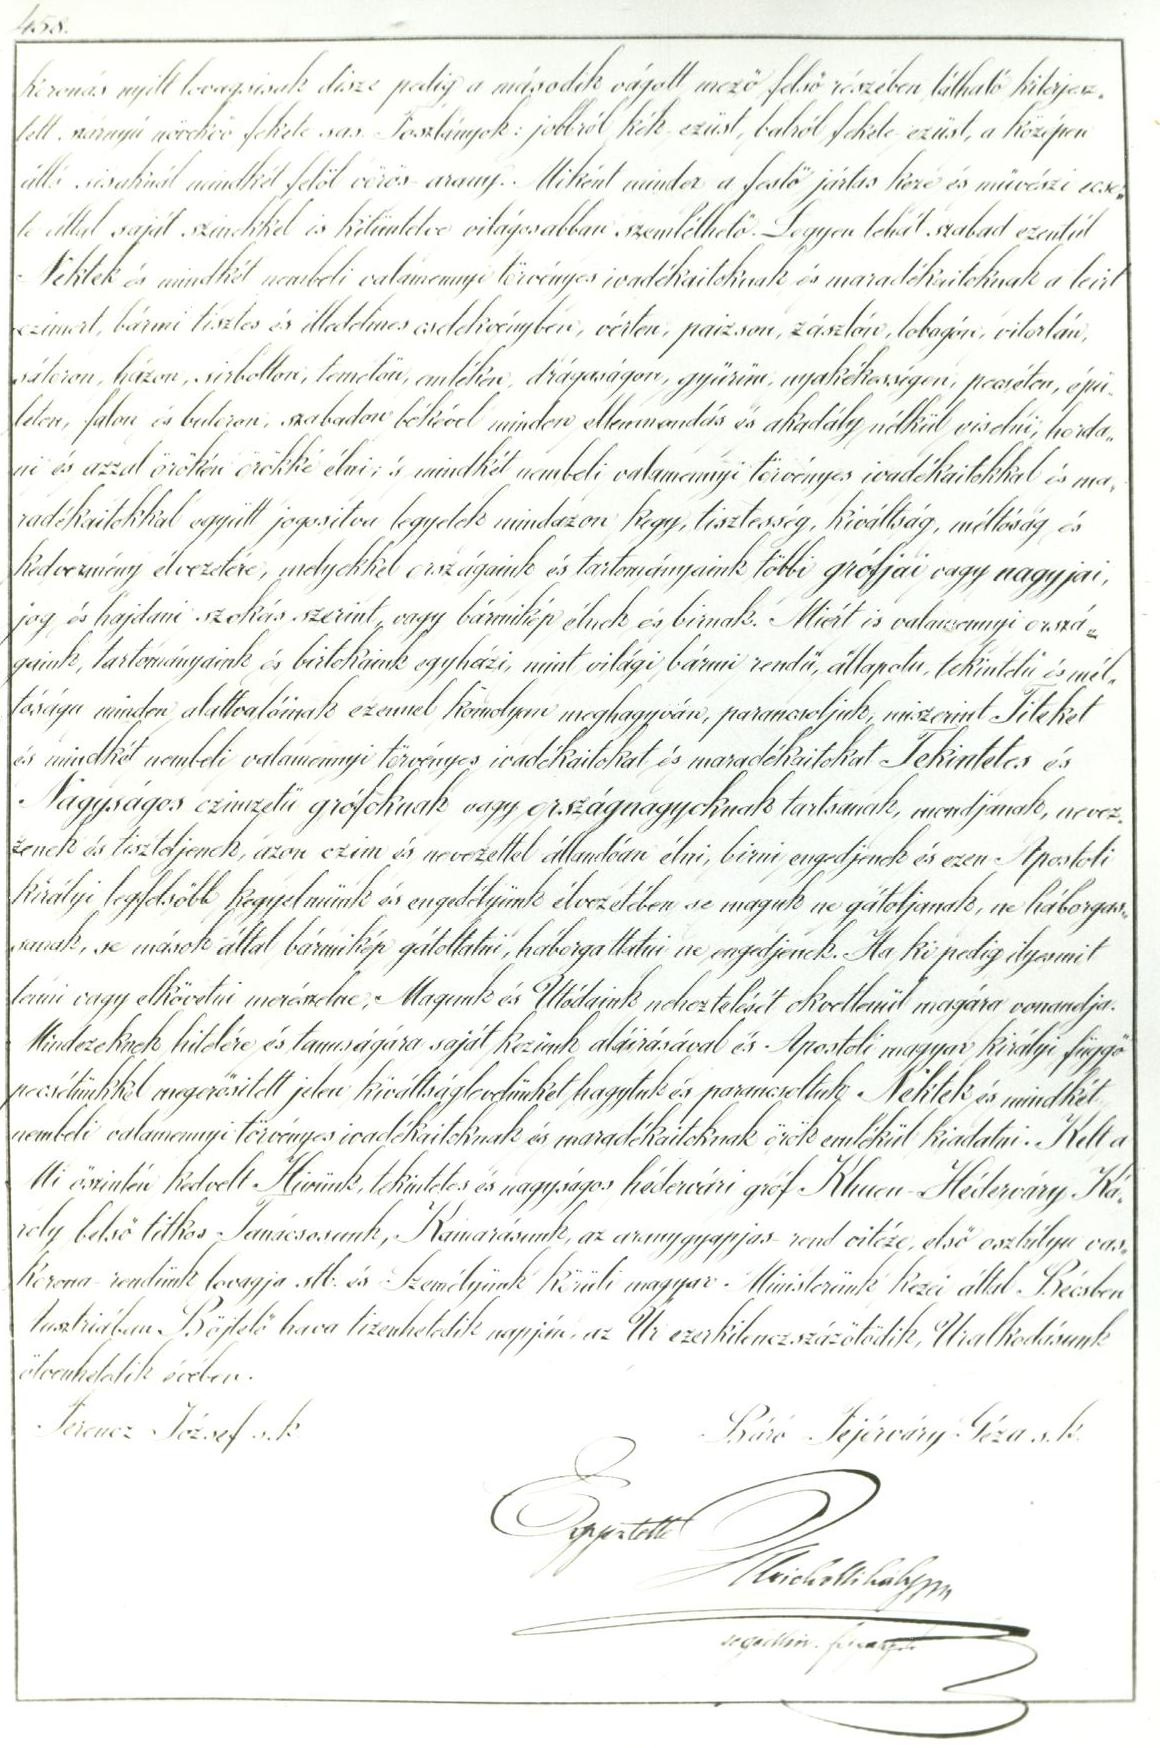 458.
koronás nyilt lovagsisak disze pedig a második vágott mező felső részében látható kiterjesz-
tett szárnyú növekvő fekete sas. Foszlányok: jobbról kék-ezüst, balról fekete-ezüst, a középen
álló sisaknál mindkét felől vörös-arany. Miként mindez a festő jártas keze és művészi ecse-
te által saját szineikkel is kitüntetve világosabban szemlélhető. Legyen tehát szabad ezentúl
Néktek és mindkét nembeli valamennyi törvényes ivadékaitoknak és maradékaitoknak a leirt
czimert, bármi tisztes és illedelmes cselekvényben, vérten, paizson, zászlón, lobogón, vitorlán,
sátoron, házon, sirbolton, temetőn, emléken, drágaságon, gyürün, nyakékességen, pecséten, épü-
leten, falon és butoron, szabadon békével minden ellenmondás és akadály nélkül viselni, horda-
ni és azzal örökön örökké élni; s mindkét nembeli valamennyi törvényes ivadékaitokkal és ma-
radékaitokkal együtt jogositva legyetek mindazon kegy, tisztesség, kiváltság, méltóság és
kedvezmény élvezetére, melyekkel országaink és tartományaink többi grófjai vagy nagyjai,
jog és hajdani szokás szerint, vagy bármikép élnek és birnak. Miért is valamennyi orszá-
gaink, tartományaink és birtokaink egyházi, mint világi, bármi rendü, állapotu, tekintetü és mél-
tóságu minden alattvalóinak ezennel komolyan meghagyván, parancsoljuk, miszerint Titeket
és mindkét nembeli valamennyi törvényes ivadékaitokat és maradékaitokat Tekintetes és
Nagyságos czimzetü grófoknak vagy országnagyoknak tartsanak, mondjanak, nevez-
zenek és tiszteljenek, azon czim és nevezettel állandóan élni, birni engedjenek és ezen Apostoli
királyi legfelsőbb kegyelmünk és engedélyünk élvezetében se maguk ne gátoljanak, ne háborgas-
sanak, se mások által bármikép gátoltatni, háborgattatni ne engedjenek. Ha ki pedig ilyesmit
tenni vagy elkövetni merészelne, Magunk és Utódaink neheztelését okvetlenül magára vonandja.
Mindezeknek hitelére és tanuságára saját kezünk aláirásával és Apostoli magyar királyi függő
pecsétünkkel megerősitett jelen kiváltságlevelünket hagytuk és parancsoltuk Néktek és mindkét
nembeli valamennyi törvényes ivadékaitoknak és maradékaitoknak örök emlékül kiadatni. Kelt a
Mi őszintén kedvelt Hivünk, tekintetes és nagyságos hédervári gróf Khuen-Héderváry Ká-
roly belső titkos Tanácsosunk, Kamarásunk, az aranygyapjas-rend vitéze, első osztályu vas-
korona-rendünk lovagja stb. és Személyünk körüli magyar Ministerünk kezei által Bécsben
Ausztriában Böjtelő hava tizenhetedik napján, az Ur ezerkilenczszázötödik, Uralkodásunk
ötvenhetedik évében.
Ferencz József s. k.
Báró Fejérváry Géza s. k.